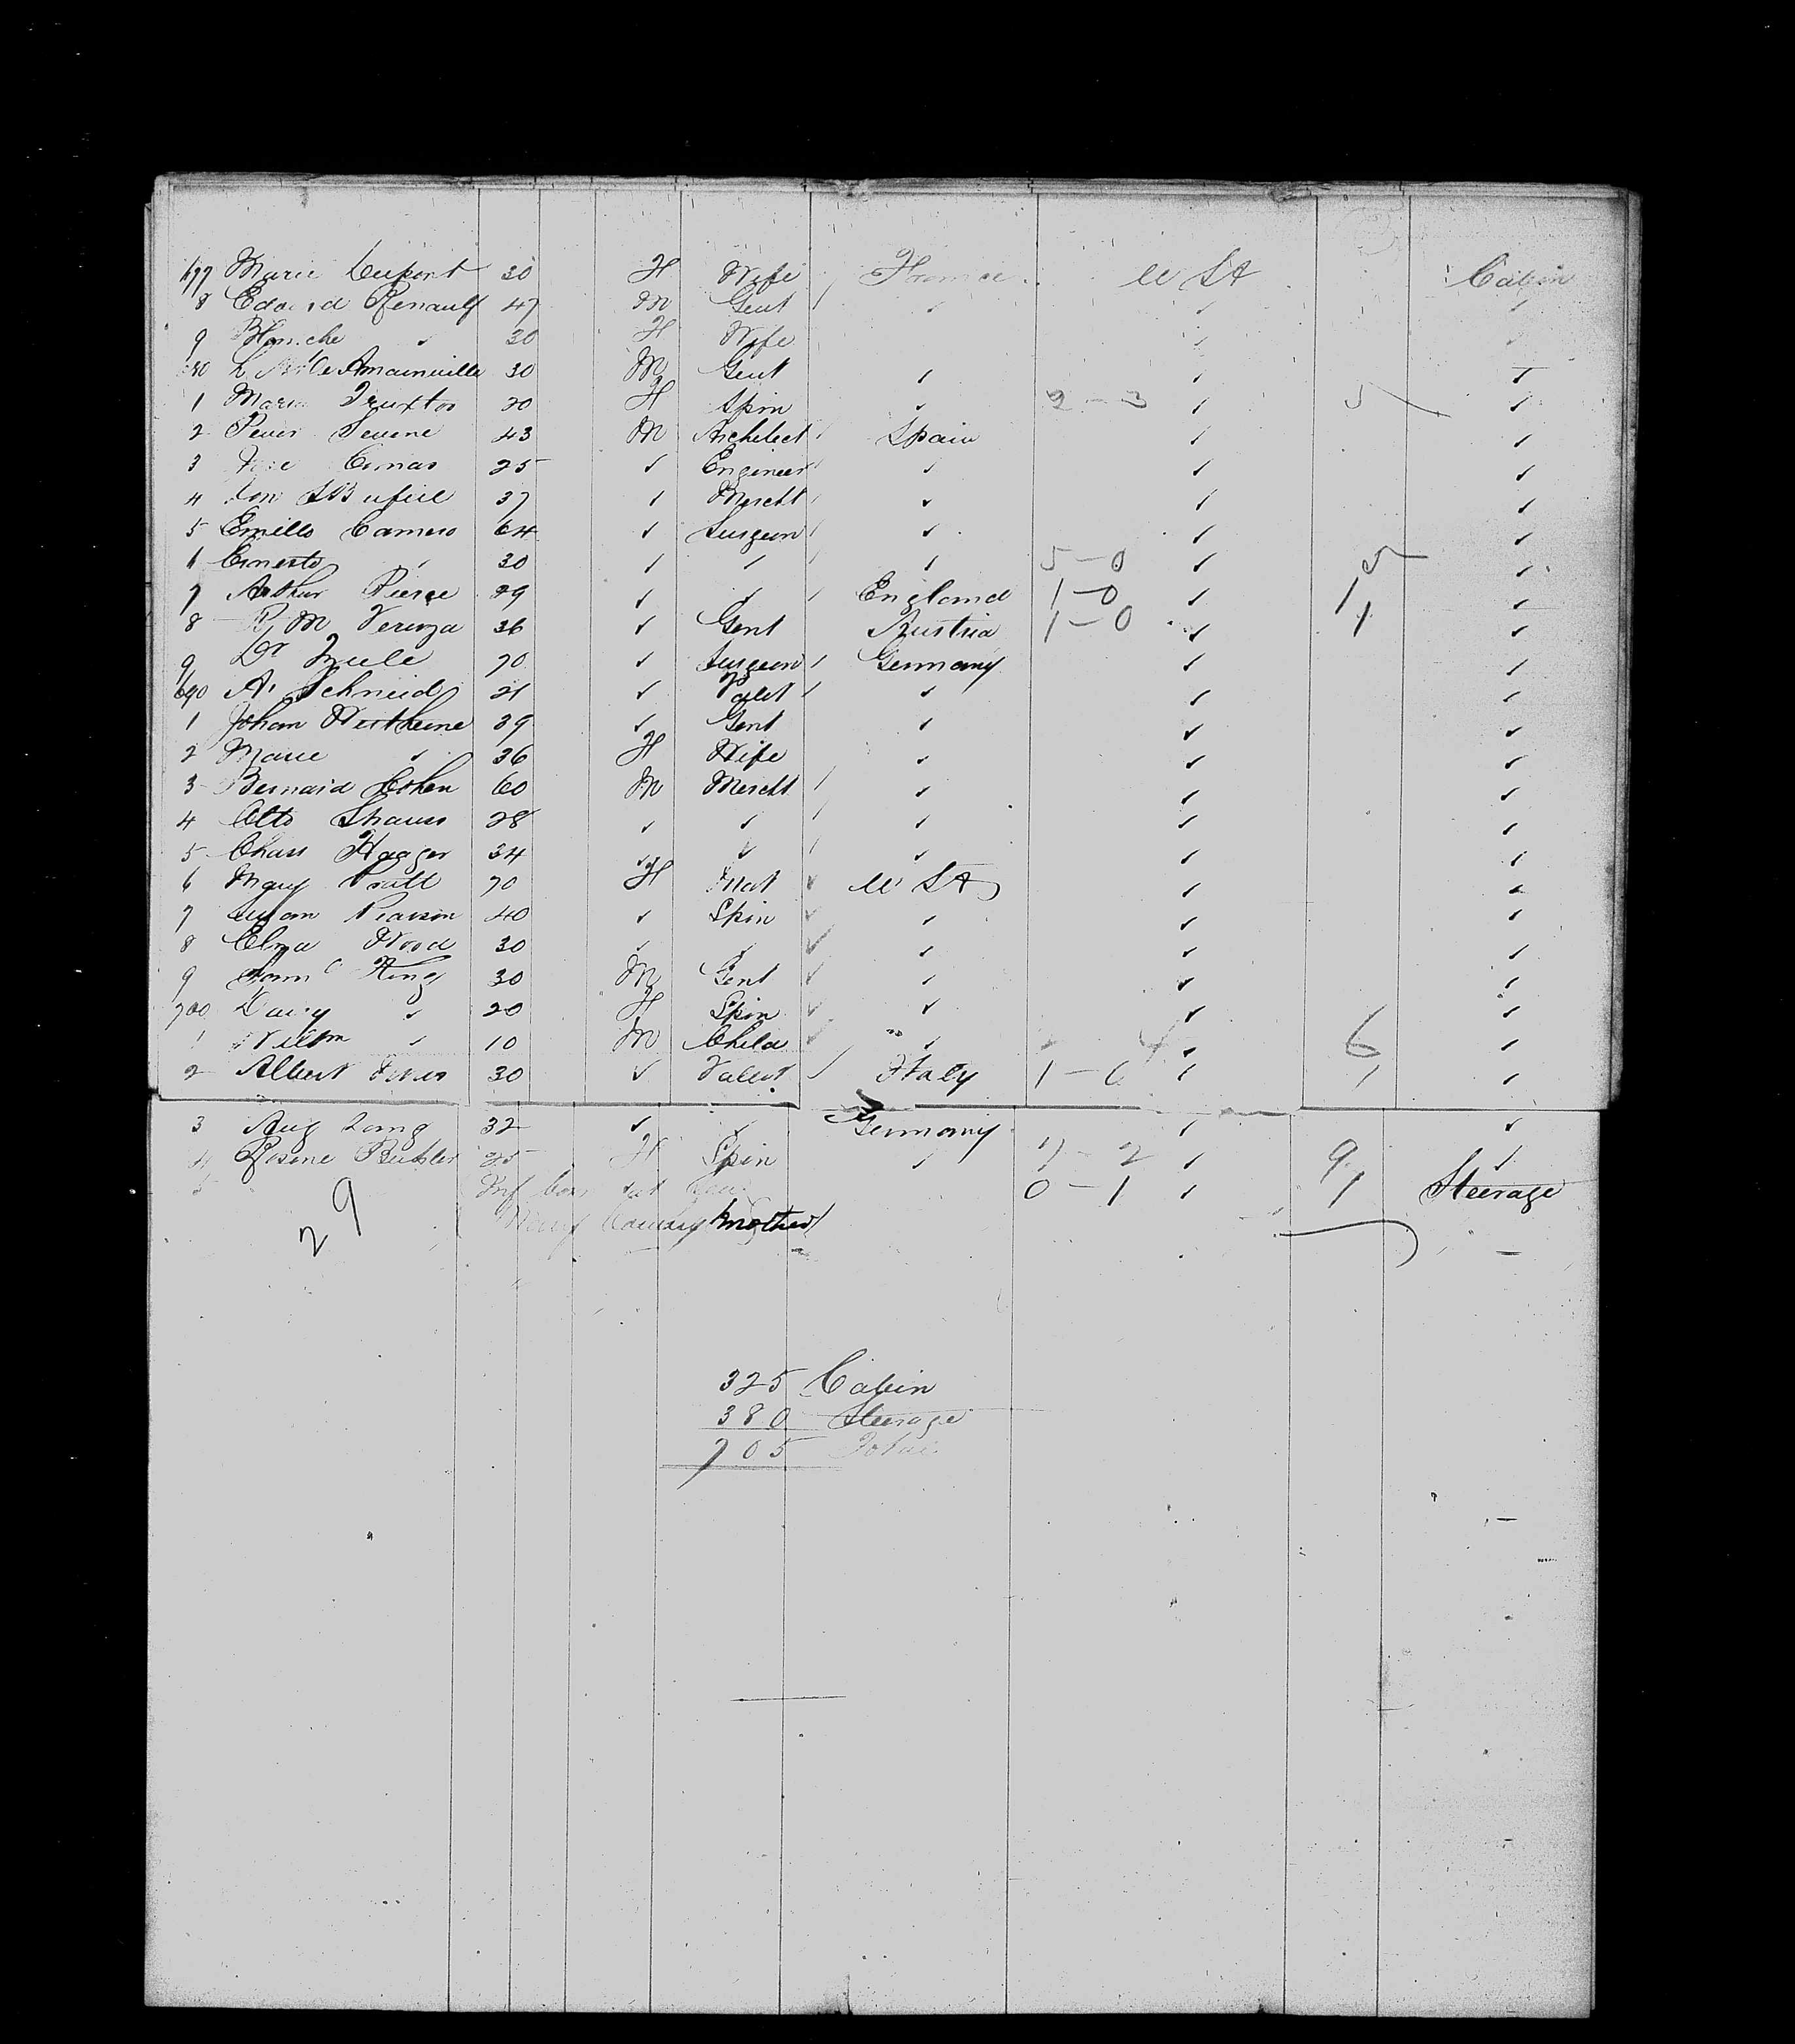 677 Marie Dupont 30 F Wife France U St Cabin
8 Edouard Renault 47 M Gent ✓ ✓ ✓
9 Blanche ✓ 30 F Wife ✓
30 M Gent ✓ ✓ ✓
1 Maria 20 F Spin ✓ 2-3 ✓ 5 ✓
2 43 M Architect Spain ✓ ✓
3 25 ✓ Engineer ✓ ✓ ✓
4 37 ✓ Mercht ✓ ✓ ✓
5 Emillo Camero 64 ✓ Surgeon ✓ ✓ ✓
6 Ernesto ✓ 30 ✓ ✓ ✓ 5-0 ✓ 5 ✓
7 Arthur Pierce 29 ✓ ✓ England 1-0 ✓ 1 ✓
8 M 36 ✓ Gent Austria 1-0 ✓ 1 ✓
9 Dr 70 ✓ Surgeon Germany ✓ ✓
690 A. Schneid 21 ✓ Valet ✓ ✓ ✓
1 Johan 39 ✓ Gent ✓ ✓ ✓
2 Marie ✓ 36 F Wife ✓ ✓ ✓
3 Bernard Cohen 60 M Mercht ✓ ✓ ✓
4 Otto Strauss 28 ✓ ✓ ✓ ✓ ✓
5 Chas Haager 34 ✓ ✓ ✓ ✓ ✓
6 Mary Pratt 70 F Mat U St ✓ ✓
7 Susan Pearson 40 ✓ Spin ✓ ✓ ✓
8 Eliza Wood 30 ✓ ✓ ✓ ✓ ✓
9 Saml King 30 M Gent ✓ ✓ ✓
700 Daisy ✓ 20 F Spin ✓ ✓ ✓
1 Willm ✓ 10 M Child ✓ ✓ 6 ✓
2 Albert 30 ✓ Valet Italy 1-0 ✓ 1 ✓
3 Aug Lang 32 ✓ ✓ Germany ✓ ✓
4 Rosine 25 F Spin ✓ 7-2 ✓ 9 ✓
5 Inf born at Sea 0-1 ✓ 1 Steerage
29 Mary mother
325 Cabin
380 Steerage
705 Total